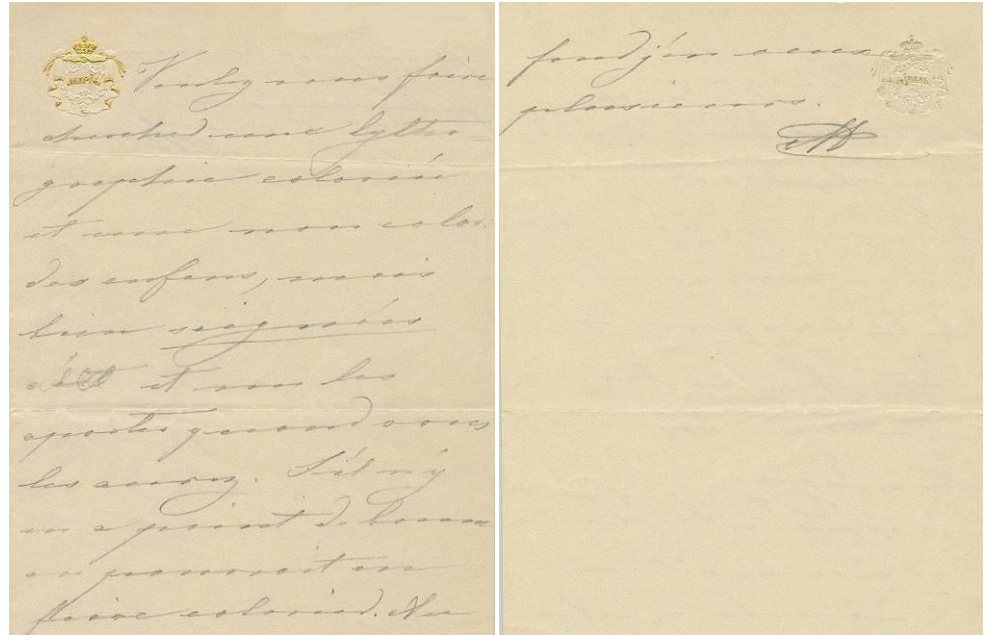 Veuley nous faire
cherched une lytho-
graphie coloriée
et une non color.
des enfans, mais
bien soignées
et me les
aporter quand vous
les aurez. S'il n'y
en a point de bonne
on pourroit en
faire coloried. Au
fond j'en veux
plusieurs.